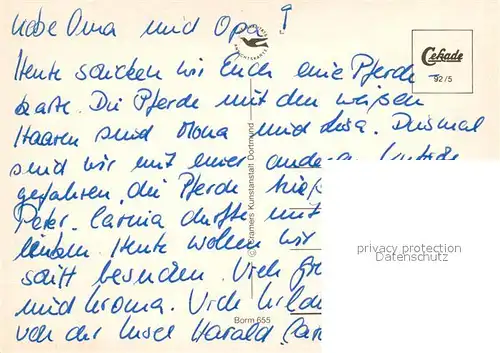 Liebe Oma und Opa!
Heute schicken wir Euch eine Pferde-
karte. Die Pferde mit den weißen
Haaren sind Mona und Lisa. Diesmal
sind wir mit einer anderen Kutsche
gefahren, die Pferde hieß
Peter. Carina durfte mit
lenken. Heute wollen wir
besuchen. Viele
und Viele
von der Insel Harald
Cekade
92/5
© Cramers Kunstanstalt Dortmund
Borm 655
privacy protection
Datenschutz